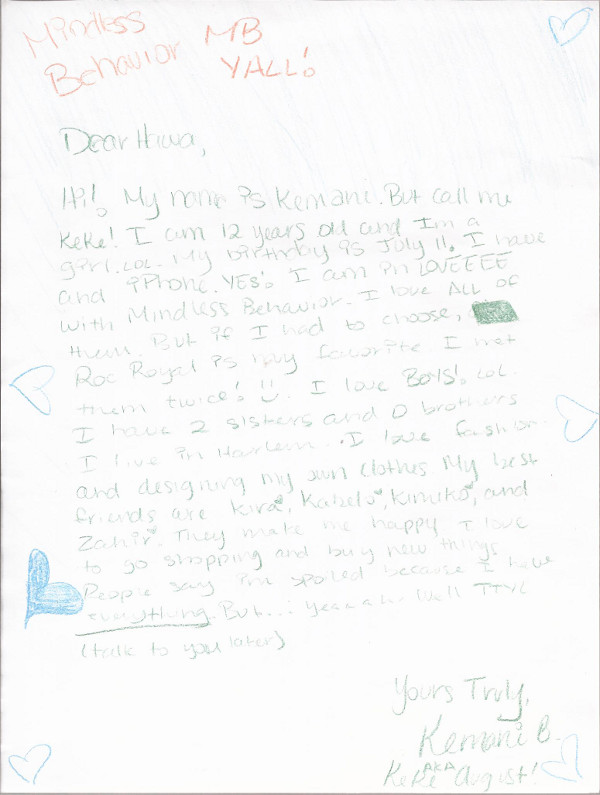 Mindless MB
Behavior YALL!
Dear Hawa,
Hi! My name is Kemani. But call me
KeKe! I am 12 years old and Im a
girl. LOL. My birthday is July 11. I have
and iPhone. YES! I am in LOVEEEE
with Mindless Behavior. I love ALL OF
them. But if I had to choose,
Roc Royal is my favorite I met
them twice! I love BOYS! LOL.
I have 2 sisters and 0 brothers
I live in Harlem. I love fashion
and designing my own clothes My best
friends are Kira, Kabelo, Kimiko, and
Zahir. They make me happy I love
to go shopping and buy new things
People say im spoiled because I have
everything. But...: Well TTYL
(talk to you later)
Yours Truly,
Kemani B.
AKA
KeKe August!